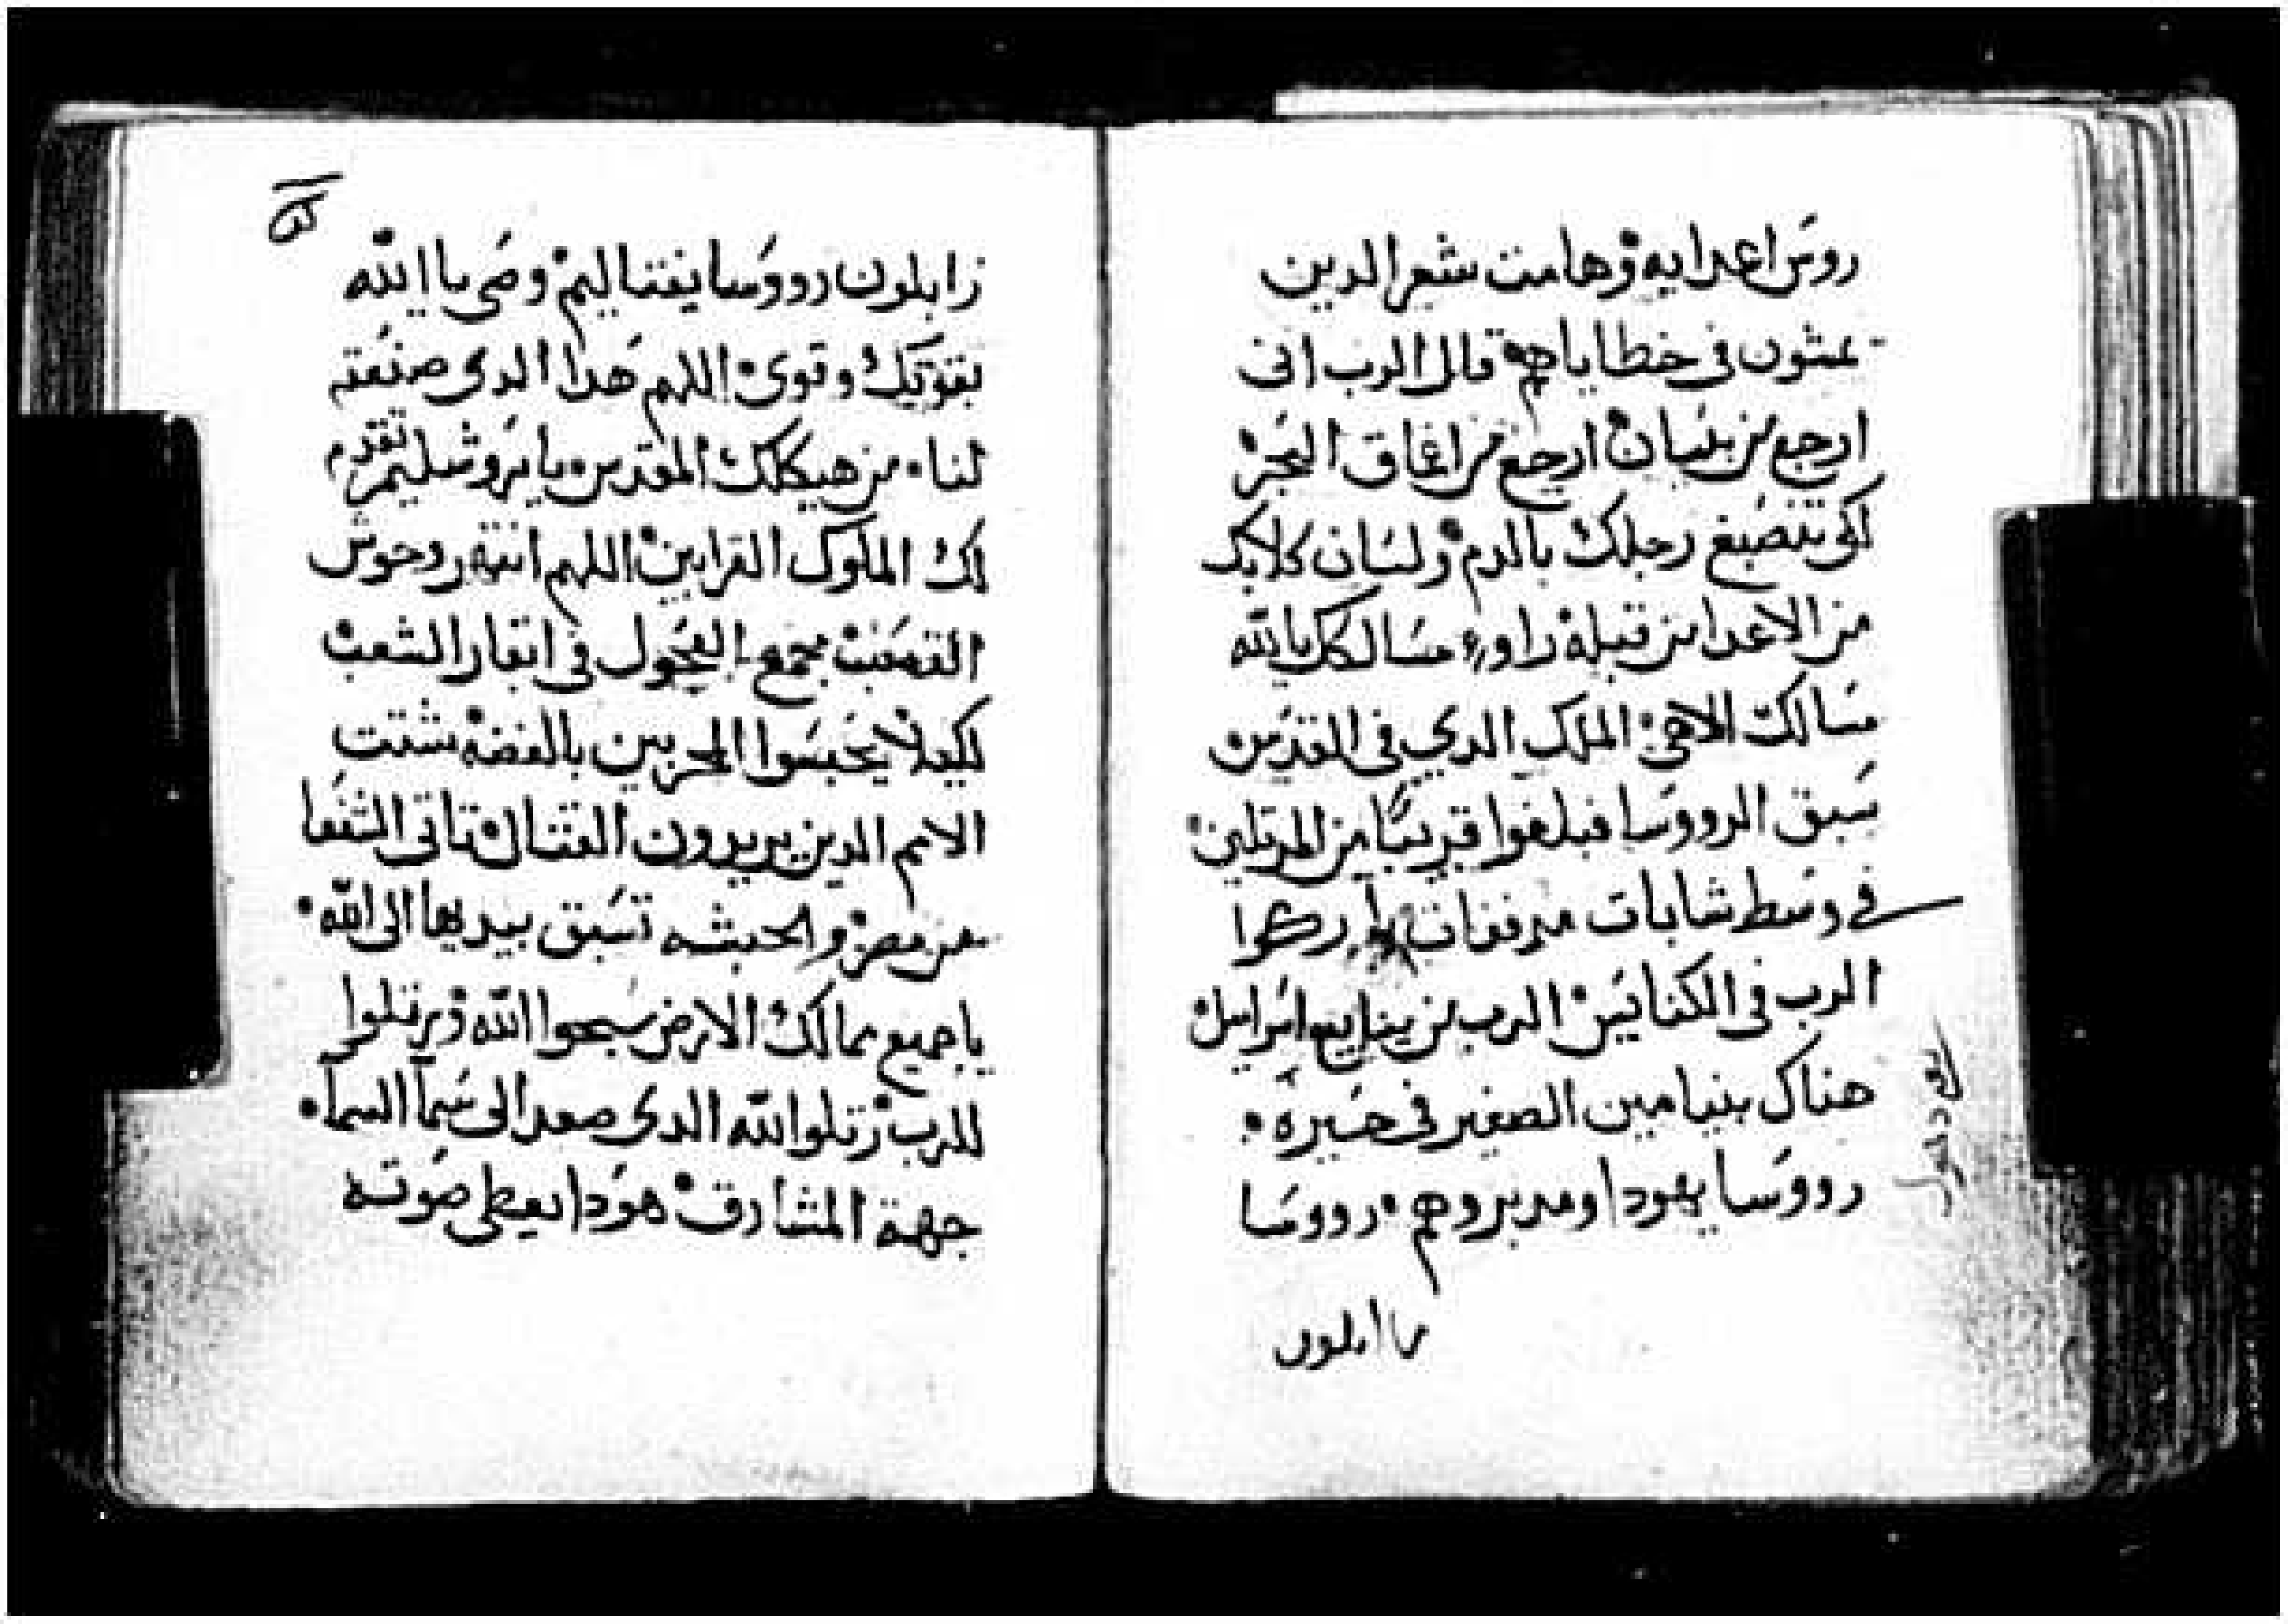 روس اعدايه وهامت شعر الدين
يمشون في خطاياهم قال الرب اني
ارجع من بيسان ارجع من اعماق البحر
لكى تنصبغ رجلك بالدم ولسان كلابك
من الاعدا من قبله راوء مسالكك يا الله
مسالك الاهي الملك الدي في القدس
سبق الرووسا فبلغوا قريبا من المرتلين
في وسط شابات مدففات باركوا
الرب في الكنايس الرب من ينابيع اسراييل
هناك بنيامين الصغير في حيره
رووسا يهودا ومدبروهم رووسا
زابلون
زابلون رووسا يفتاليم وصي يا الله
بقوتك وقوى اللهم هدا الدى صنعته
لنا من هيكلك المقدس يايروشليم تقدم
لك الملوك القرابين اللهم انتهر وحوش
القصب مجمع العجول في ابقار الشعب
لكيلا يحبسوا المجربين بالفضه شتت
الامم الدين يريدون القتال تاتى الشفعا
من مصر والحبشه تسبق بيديها الى الله
ياجميع ممالك الارض سبحوا الله ورتلوا
للرب رتلوا لله الدى صعد الى سما السما
جهة المشارق هودا يعطى صوته